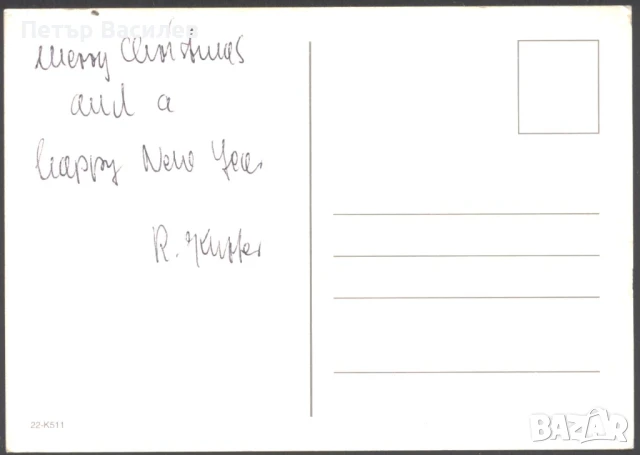 Петър Василев
Merry Christmas
and a
happy New Year
R.
22-K511
BAZAR